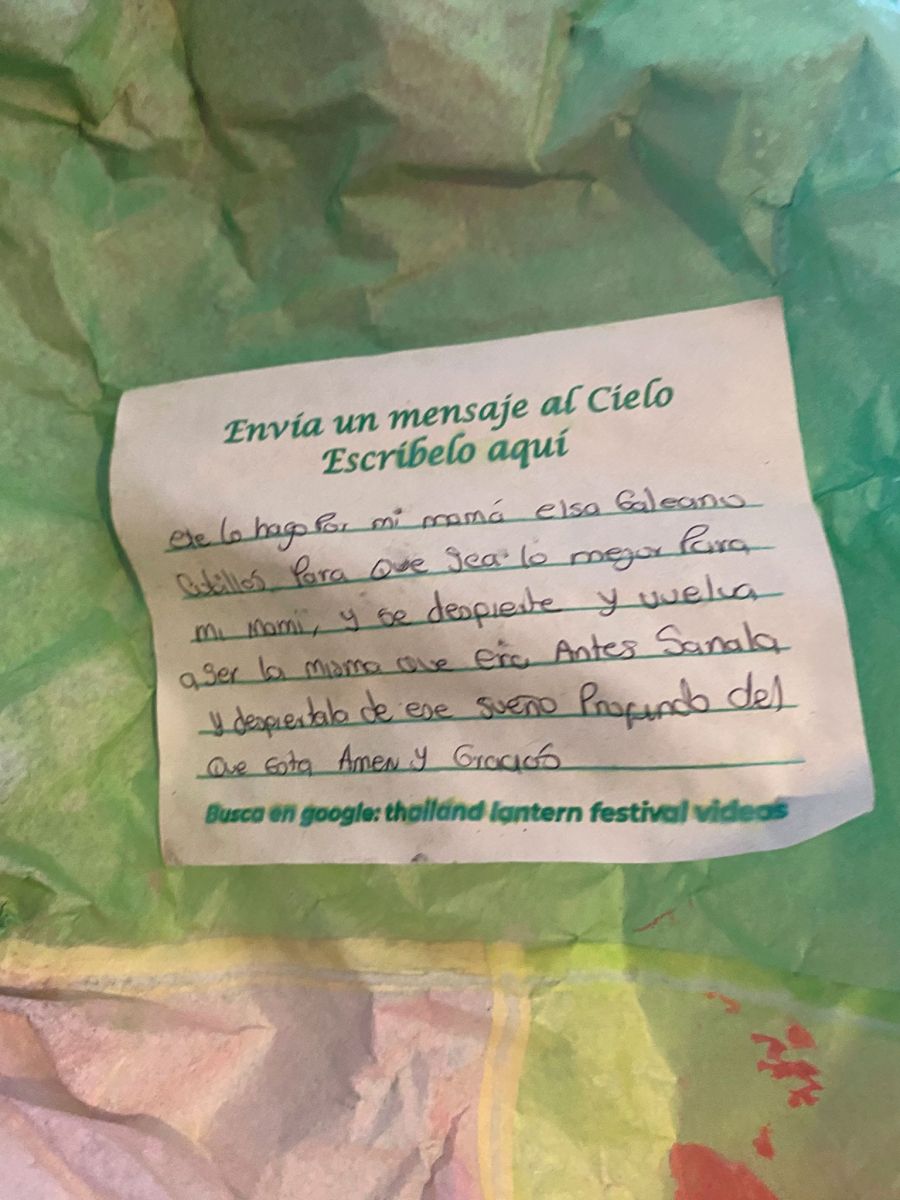 Envía un mensaje al Cielo
Escríbelo aquí
ete lo hago Por mi mamá elsa Galeano
Para que sea lo mejor Para
mi mami, y se despierte y vuelva
a ser la misma que era Antes Sanala
y despiertala de ese sueño Profundo del
que esta Amen y Gracias
Busca en google: thailand lantern festival videas